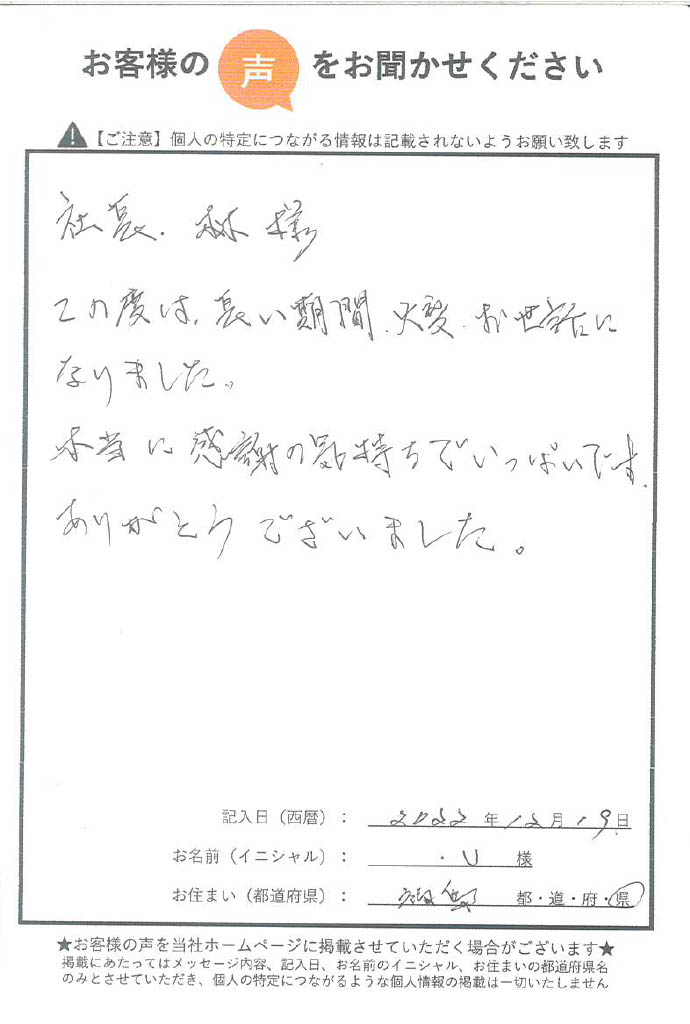 お客様の声をお聞かせください
【ご注意】個人の特定につながる情報は記載されないようお願い致します
社長、林 様
この度は、長い期間、大変、お世話に
なりました。
本当に感謝の気持ちでいっぱいです。
ありがとうございました。
記入日（西暦）： 2022 年 12 月 19 日
お名前（イニシャル）： ・U 様
お住まい（都道府県）： 都・道・府・県
★お客様の声を当社ホームページに掲載させていただく場合がございます★
掲載にあたってはメッセージ内容、記入日、お名前のイニシャル、お住まいの都道府県名
のみとさせていただき、個人の特定につながるような個人情報の掲載は一切いたしません